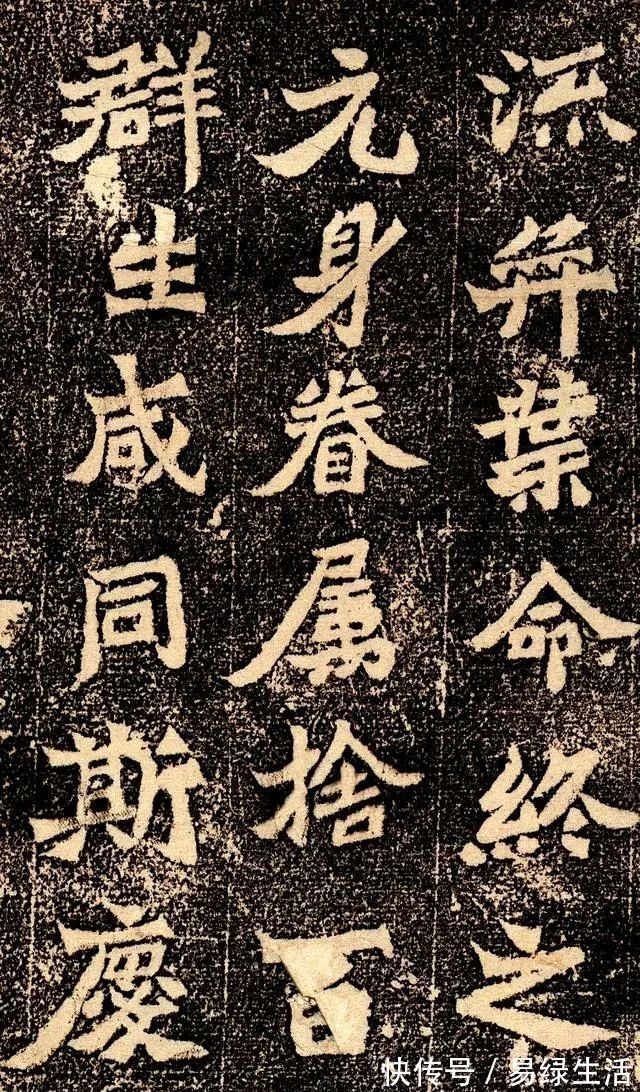 流弈葉命終之
元身眷属捨百
群生咸同斯慶
快传号/易绿生活